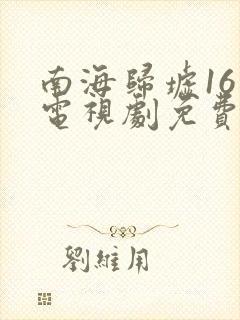 南海歸墟16
電視劇免費
劉維用